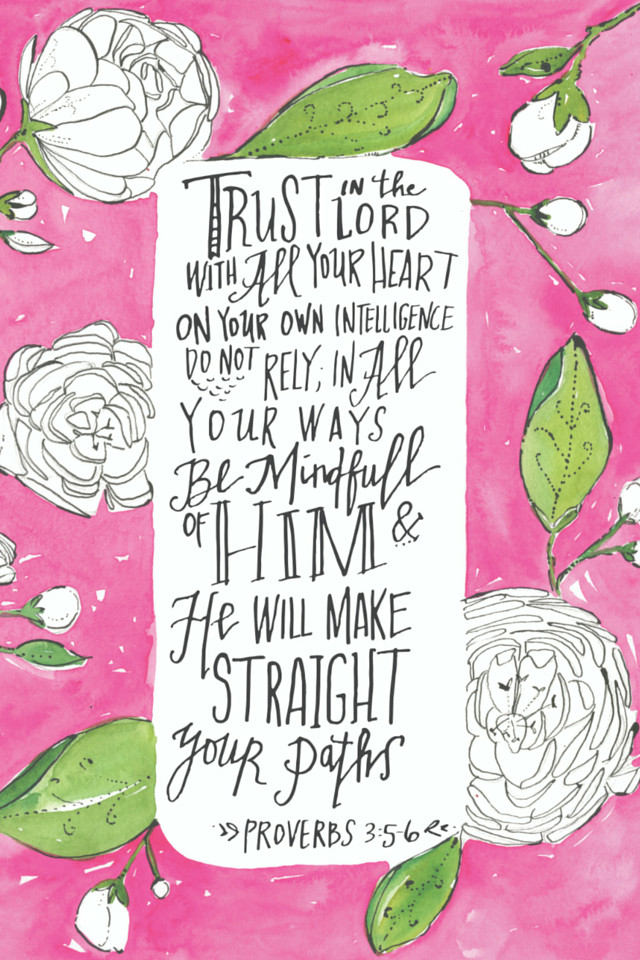 TRUST IN the LORD
WITH All YOUR HEART
ON YOUR OWN INTELLIGENCE
DO NOT RELY; IN All
YOUR WAYS
Be Mindfull
OF HIM &
He WILL MAKE
STRAIGHT
your paths
PROVERBS 3:5-6